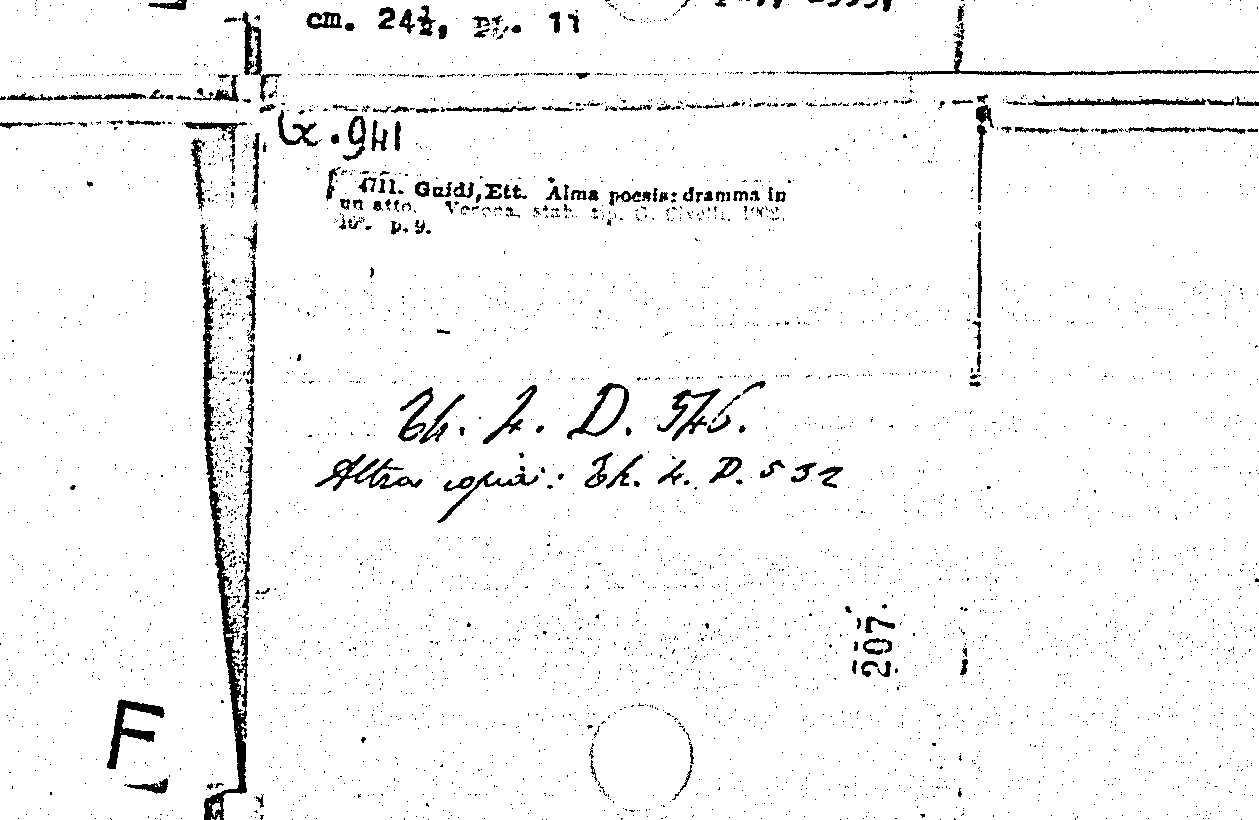 cm. 24½, pp. 11
Cx. 941
4711. Guidi, Ett. Alma poesia: dramma in
un atto. Verona, stab. tip. G. Civelli, 1902.
16°. p. 9.
Th. 4. D. 546.
Altra copia: Th. 4. D. 532
207.
F